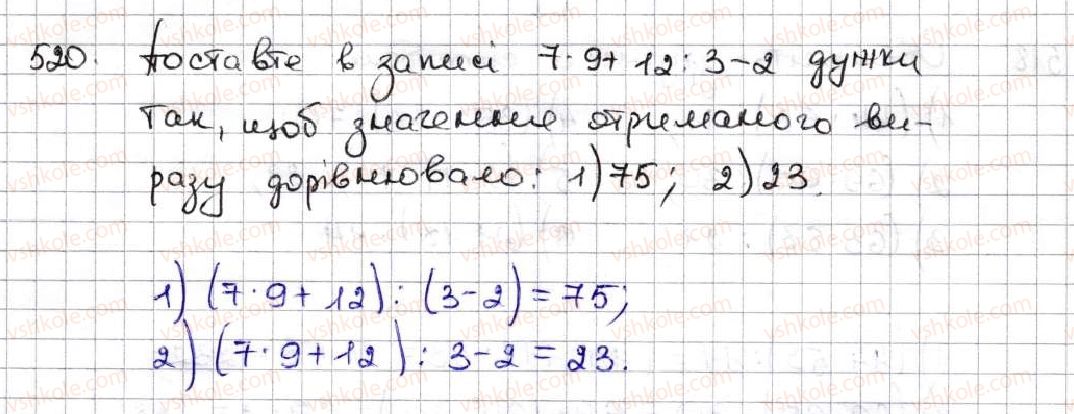 520. Поставте в записі 7·9+12:3-2 дужки
так, щоб значення отриманого ви-
разу дорівнювало: 1) 75; 2) 23.
1) (7·9+12):(3-2)=75;
2) (7·9+12):3-2=23.